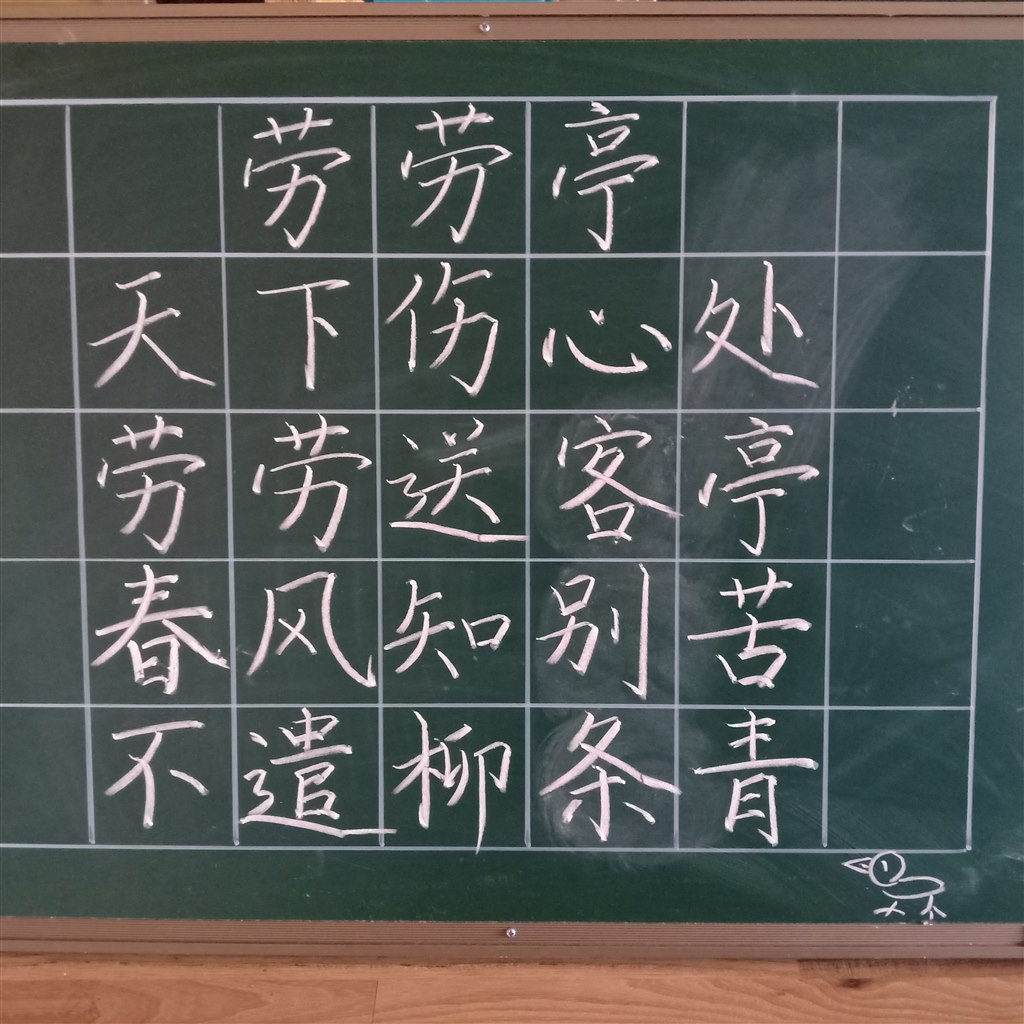 劳劳亭
天下伤心处
劳劳送客亭
春风知别苦
不遣柳条青